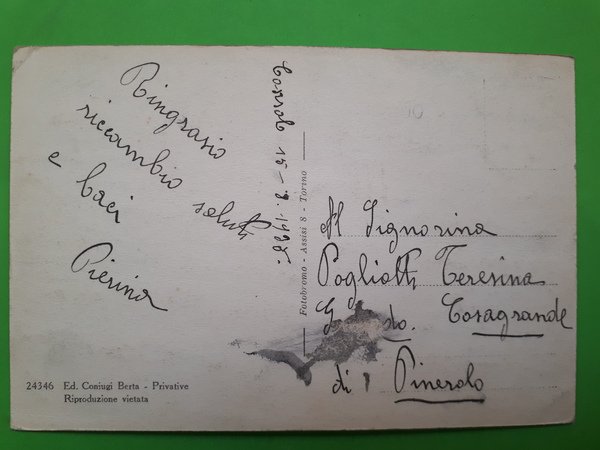 Ringrasio
riccambio saluti
e baci
Pierina
15-9.1935.
Fotobromo - Assisi 8 - Torino
Signorina
Pogliotti Teresina
Casagrande
di
Pinerolo
24346 Ed. Coniugi Berta - Privative
Riproduzione vietata